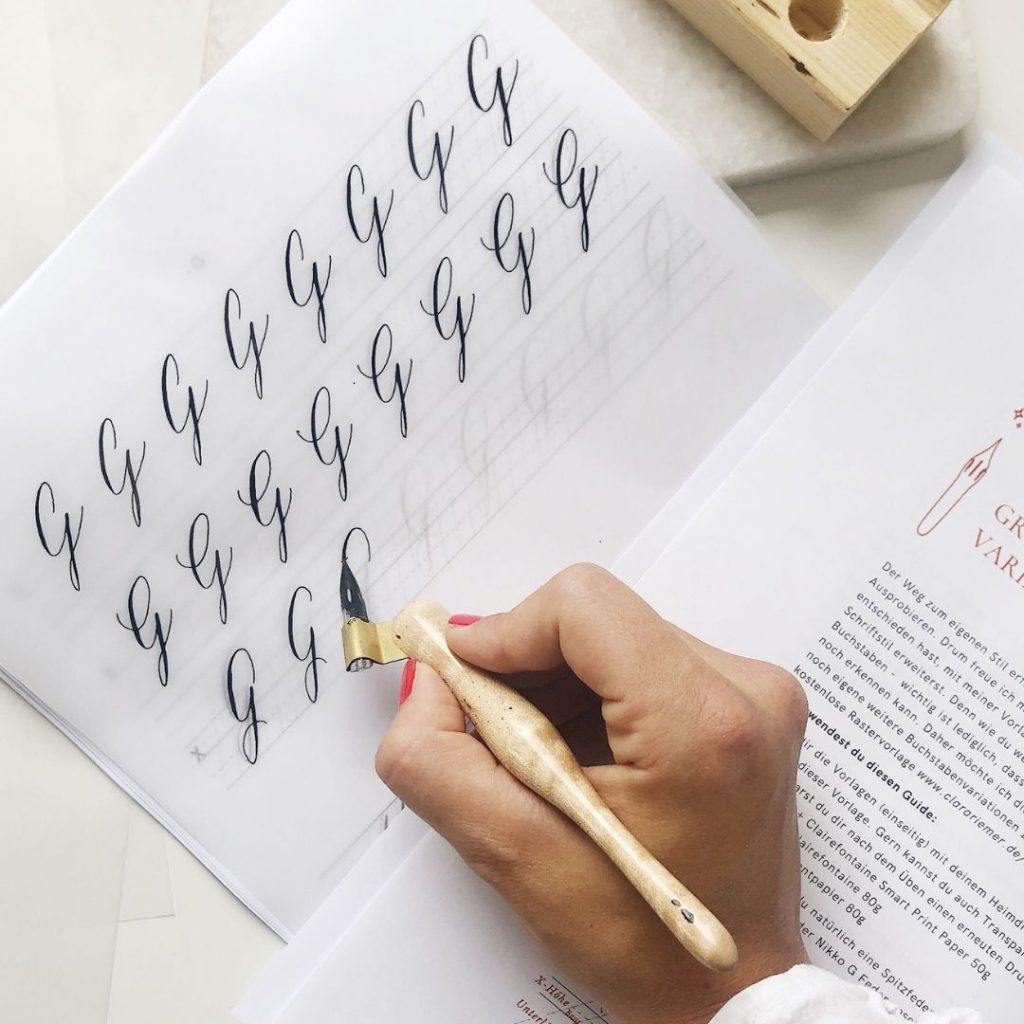 G G G G G G G G
G G G G G G G G
G G
x
GR
VARI
Der Weg zum eigenen Stil er
Ausprobieren. Drum freue ich
entschieden hast, mit meiner Vor
Schriftstil erweiterst. Denn wie du w
Buchstaben - wichtig ist lediglich, dass
noch erkennen kann. Daher möchte ich di
noch eigene weitere Buchstabenvariationen
kostenlose Rastervorlage www.clarariemer.de/
wendest du diesen Guide:
ir die Vorlagen (einseitig) mit deinem Heimdr
dieser Vorlage. Gern kannst du auch Transpa
arst du dir nach dem Üben einen erneuten Dru
+ Clairefontaine Smart Print Paper 50g
lairefontaine 80g
ntpapier 80g
du natürlich eine Spitzfede
der Nikko G Feder
X-Höhe
Unterl